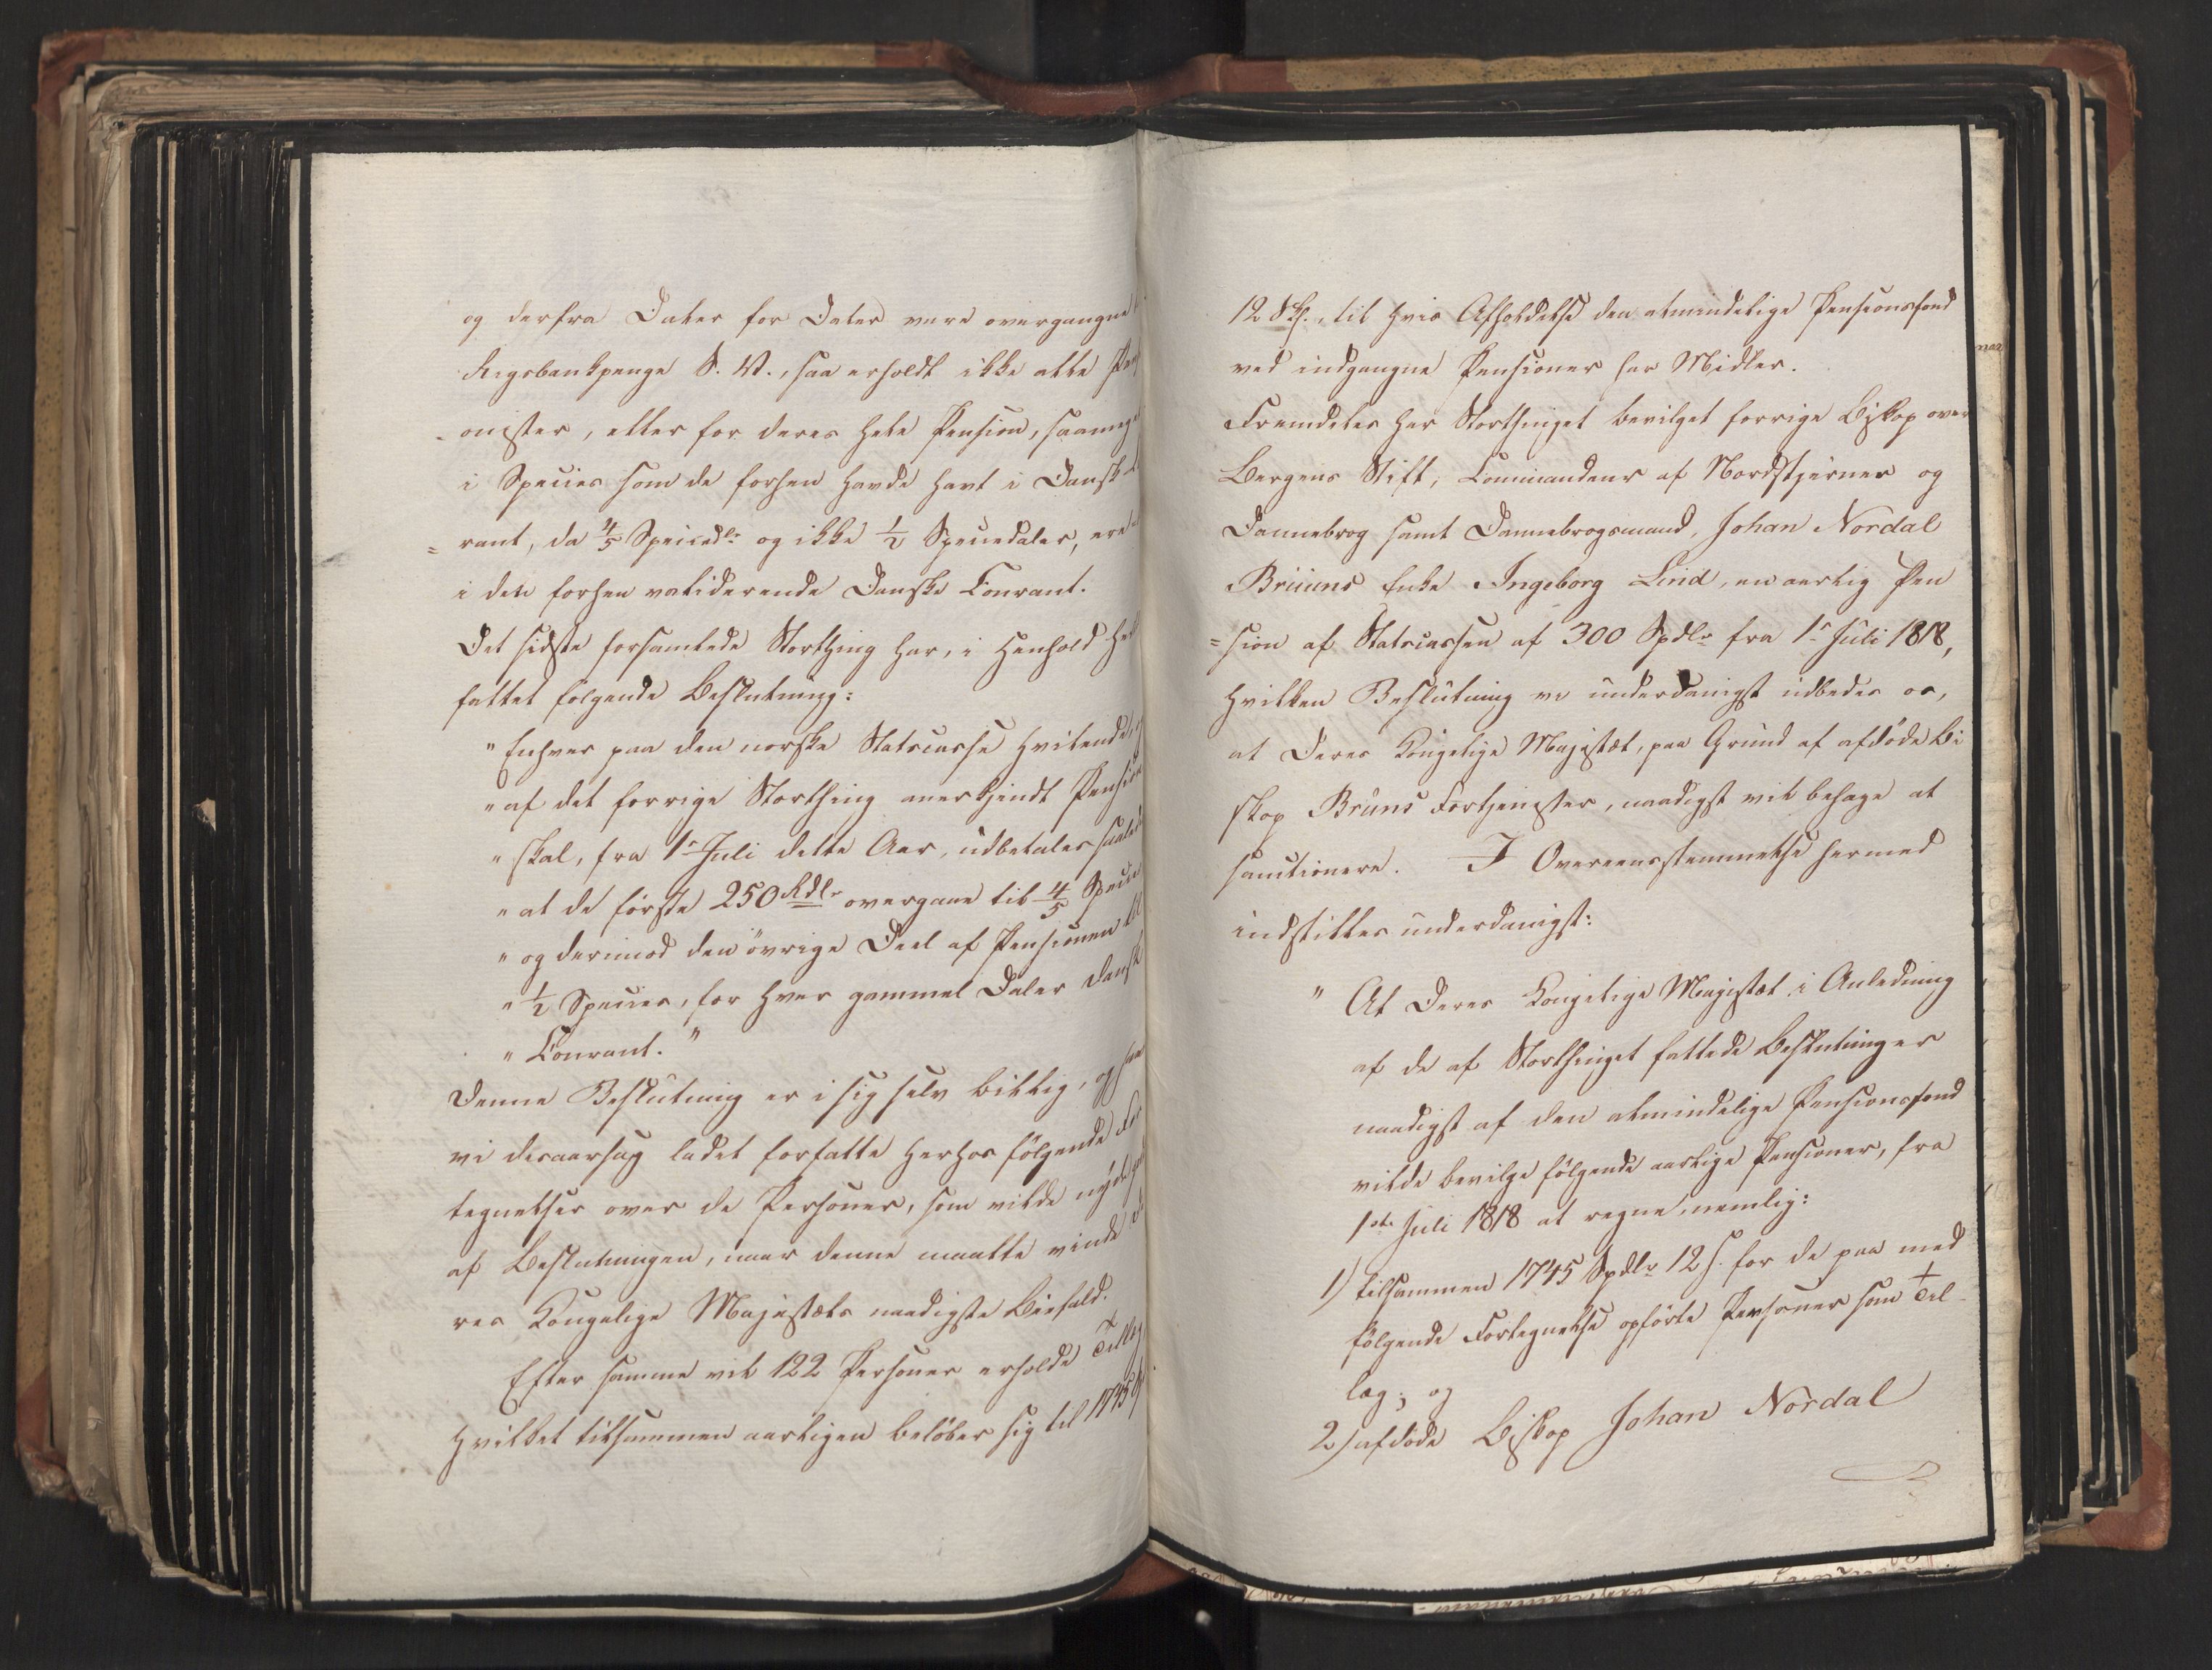 og derfra Daler for Daler være overgangne
Rigsbankpenge S. V., saa erholdt ikke alle Pen
-onister, eller for deres hele Pension, saameget
i Species som de forhen havde havt i Dansk
=rant, da 4/5 Speciedlr og ikke 1/2 Speciedaler, ere
i den forhen validerende Danske Courant.
Det sidste forsamlede Storthing har, i Henhold her
fattet følgende Beslutning:
"Enhver paa den norske Statscasse hvilende,
"af det forrige Storthing anerkjendt Pension
"skal, fra 1r Juli dette Aar, udbetales saaled
"at de første 250 Rdlr overgaae til 4/5 Specie
"og derimod den øvrige Deel af Pensionen til
"1/2 Species, for hver gammel Daler Dansk
"Courant."
Denne Beslutning er i sig selv billig, og have
vi desaarsag ladet forfatte herhos følgende For
tegnelser over de Personer, som vilde nyde godt
af Beslutningen, naar denne maatte vinde De
res Kongelige Majestæts naadigste Bifald.
Efter samme vil 122 Personer erholde Tillæg
hvilket tilsammen aarligen beløber sig til 1745
12 Skl., til hvis Afholdelse den almindelige Pensionsfond
ved indgangne Pensioner har Midler.
Fremdeles har Storthinget bevilget forrige Biskop over
Bergens Stift, Commandeur af Nordstjernen og
Dannebrog samt Dannebrogsmand, Johan Nordal
Bruuns Enke Ingeborg Lind, en aarlig Pen
=sion af Statscassen af 300 Spdlr fra 1r Juli 1818,
hvilken Beslutning vi underdanigst udbede os,
at Deres Kongelige Majestæt, paa Grund af afdøde Bi
skop Bruns Fortjenester, naadigst vil behage at
sanctionere. I Overeensstemmelse hermed
indstilles underdanigst:
" At Deres Kongelige Majestæt i Anledning
af de af Storthinget fattede Beslutninger
naadigst af den almindelige Pensionsfond
vilde bevilge følgende aarlige Pensioner, fra
1ste Juli 1818 at regne, nemlig:
1) tilsammen 1745 Spdlr 12 s. for de paa med
følgende Fortegnelse opførte Personer som Til-
læg; og
2) afdøde Biskop Johan Nordal